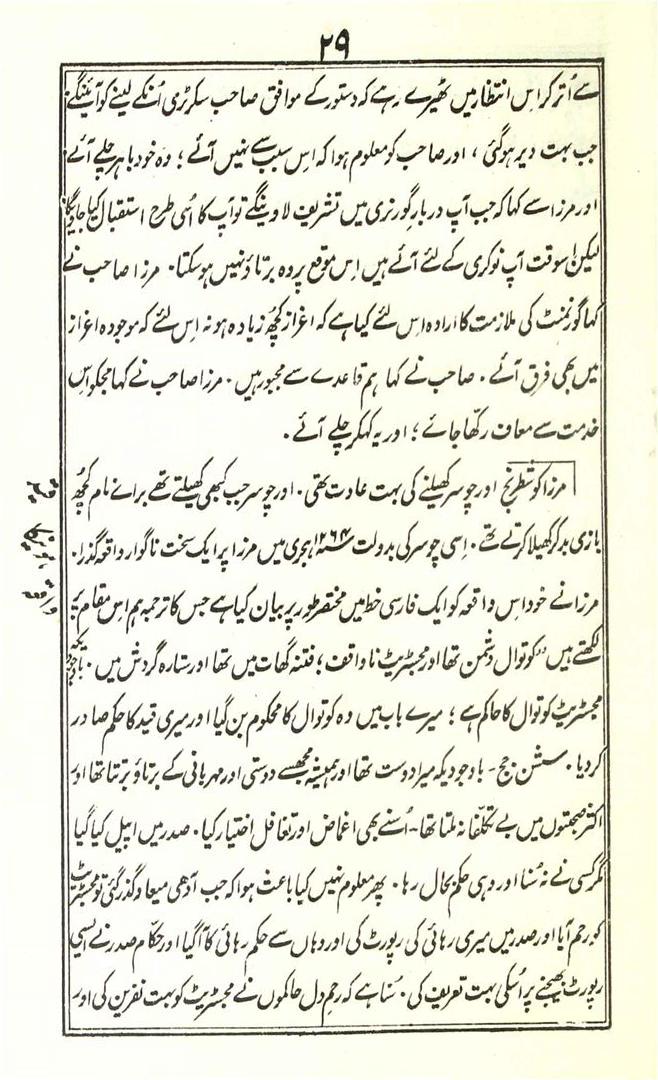 ۲۹
سے اُتر کر اِس انتظار میں ٹھیرے رہے کہ دستور کے موافق صاحب سکرٹری اُنکے لینے کو آئینگے
جب بہت دیر ہوگئی ، اور صاحب کو معلوم ہوا کہ اس سبب سے نہیں آئے ؛ وہ خود باہر چلے آئے
اور مرزا سے کہا کہ جب آپ دربار گورنری میں تشریف لاوینگے تو آپ کا اُسی طرح استقبال کیا جاویگا
لیکن اسوقت آپ نوکری کے لئے آئے ہیں اِس موقع پر وہ برتاؤ نہیں ہو سکتا ۔ مرزا صاحب نے
کہا گورنمنٹ کی ملازمت کا ارادہ اس لئے کیا ہے کہ اعزاز کچھ زیادہ ہو نہ اس لئے کہ موجودہ اعزاز
میں بھی فرق آئے ۔ صاحب نے کہا ہم قاعدے سے مجبور ہیں ۔ مرزا صاحب نے کہا مجکو اس
خدمت سے معاف رکھا جائے ؛ اور یہ کہکر چلے آئے ۔
مرزا کو شطرنج اور چوسر کھیلنے کی بہت عادت تھی ۔ اور چوسر جب کبھی کھیلتے تھے براے نام کچھ
بازی بد کر کھیلا کرتے تھے ۔ اِسی چوسر کی بدولت سنہ ۱۲۶۴ ہجری میں مرزا پر ایک سخت ناگوار واقعہ گذرا ۔
مرزا نے خود اِس واقعہ کو ایک فارسی خط میں مختصر طور پر بیان کیا ہے جس کا ترجمہ ہم اِس مقام پر
لکھتے ہیں " کوتوال دشمن تھا اور مجسٹریٹ ناواقف ؛ فتنہ گھات میں تھا اور ستارہ گردش میں ۔ باوجودیکہ
مجسٹریٹ کوتوال کا حاکم ہے ؛ میرے باب میں وہ کوتوال کا محکوم بن گیا اور میری قید کا حکم صادر
کر دیا ۔ سشن جج - باوجودیکہ میرا دوست تھا اور ہمیشہ مجھسے دوستی اور مہربانی کے برتاؤ برتتا تھا اور
اکثر صحبتوں میں بے تکلفانہ ملتا تھا - اُسنے بھی اغماض اور تغافل اختیار کیا ۔ صدر میں اپیل کیا گیا
مگر کسی نے نہ سُنا اور وہی حکم بحال رہا ۔ پھر معلوم نہیں کیا باعث ہوا کہ جب آدھی میعاد گذر گئی تو مجسٹریٹ
کو رحم آیا اور صدر میں میری رہائی کی رپورٹ کی اور وہاں سے حکم رہائی کا آگیا اور حکّام صدر نے ایسی
رپورٹ بھیجنے پر اُسکی بہت تعریف کی ۔ سُنا ہے کہ رحم دل حاکموں نے مجسٹریٹ کو بہت نفرین کی اور